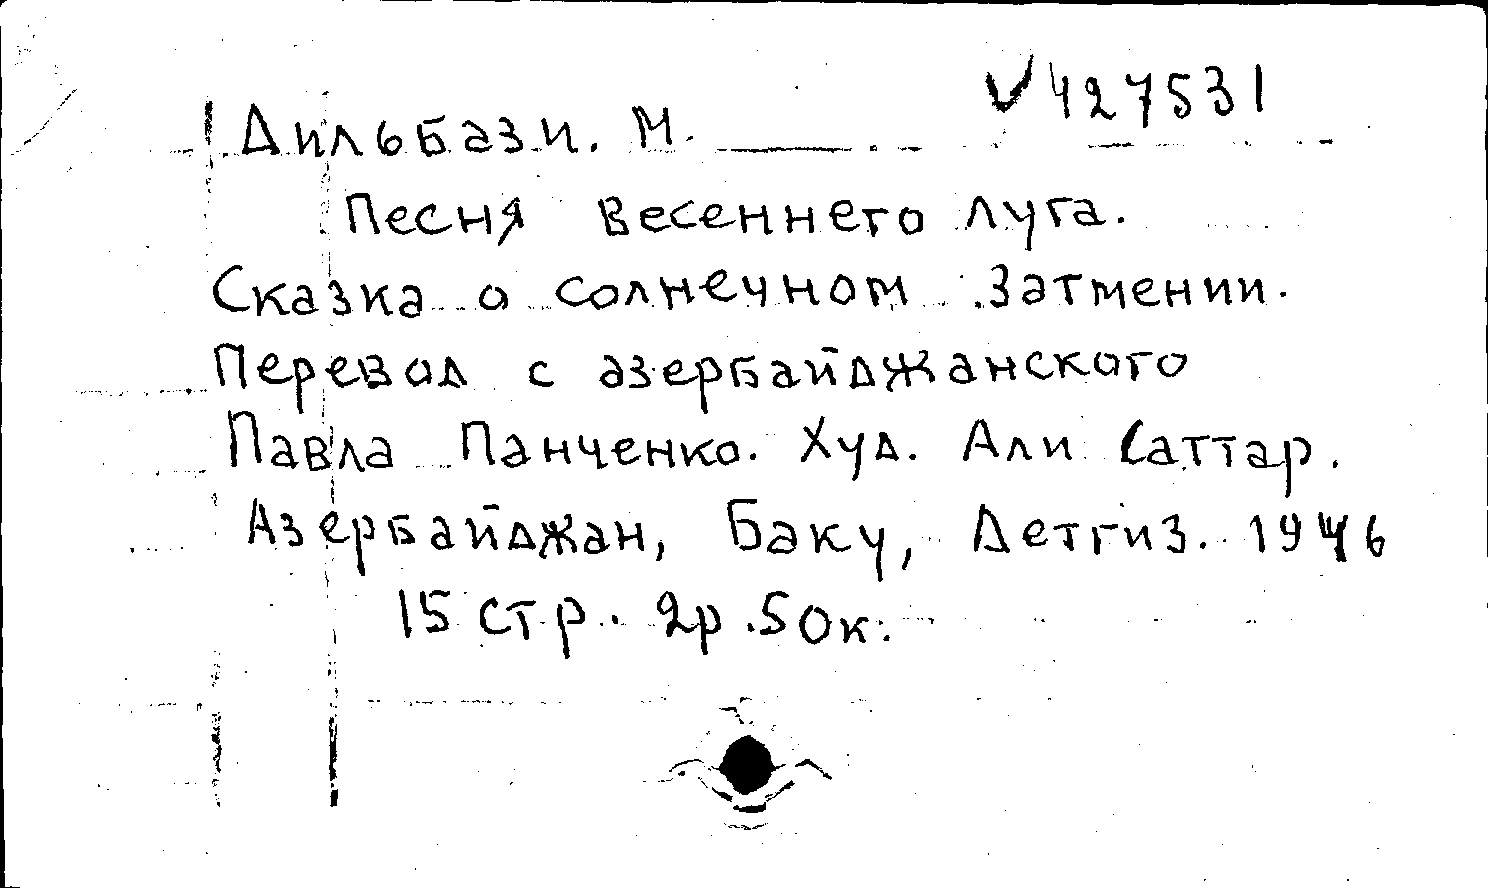 V 427531
Дильбази. М.
Песня весеннего луга.
Сказка о солнечном затмении.
Перевод с азербайджанского
Павла Панченко. Худ. Али Саттар.
Азербайджан, Баку, Детгиз. 1946
15 стр. 2р.50к.